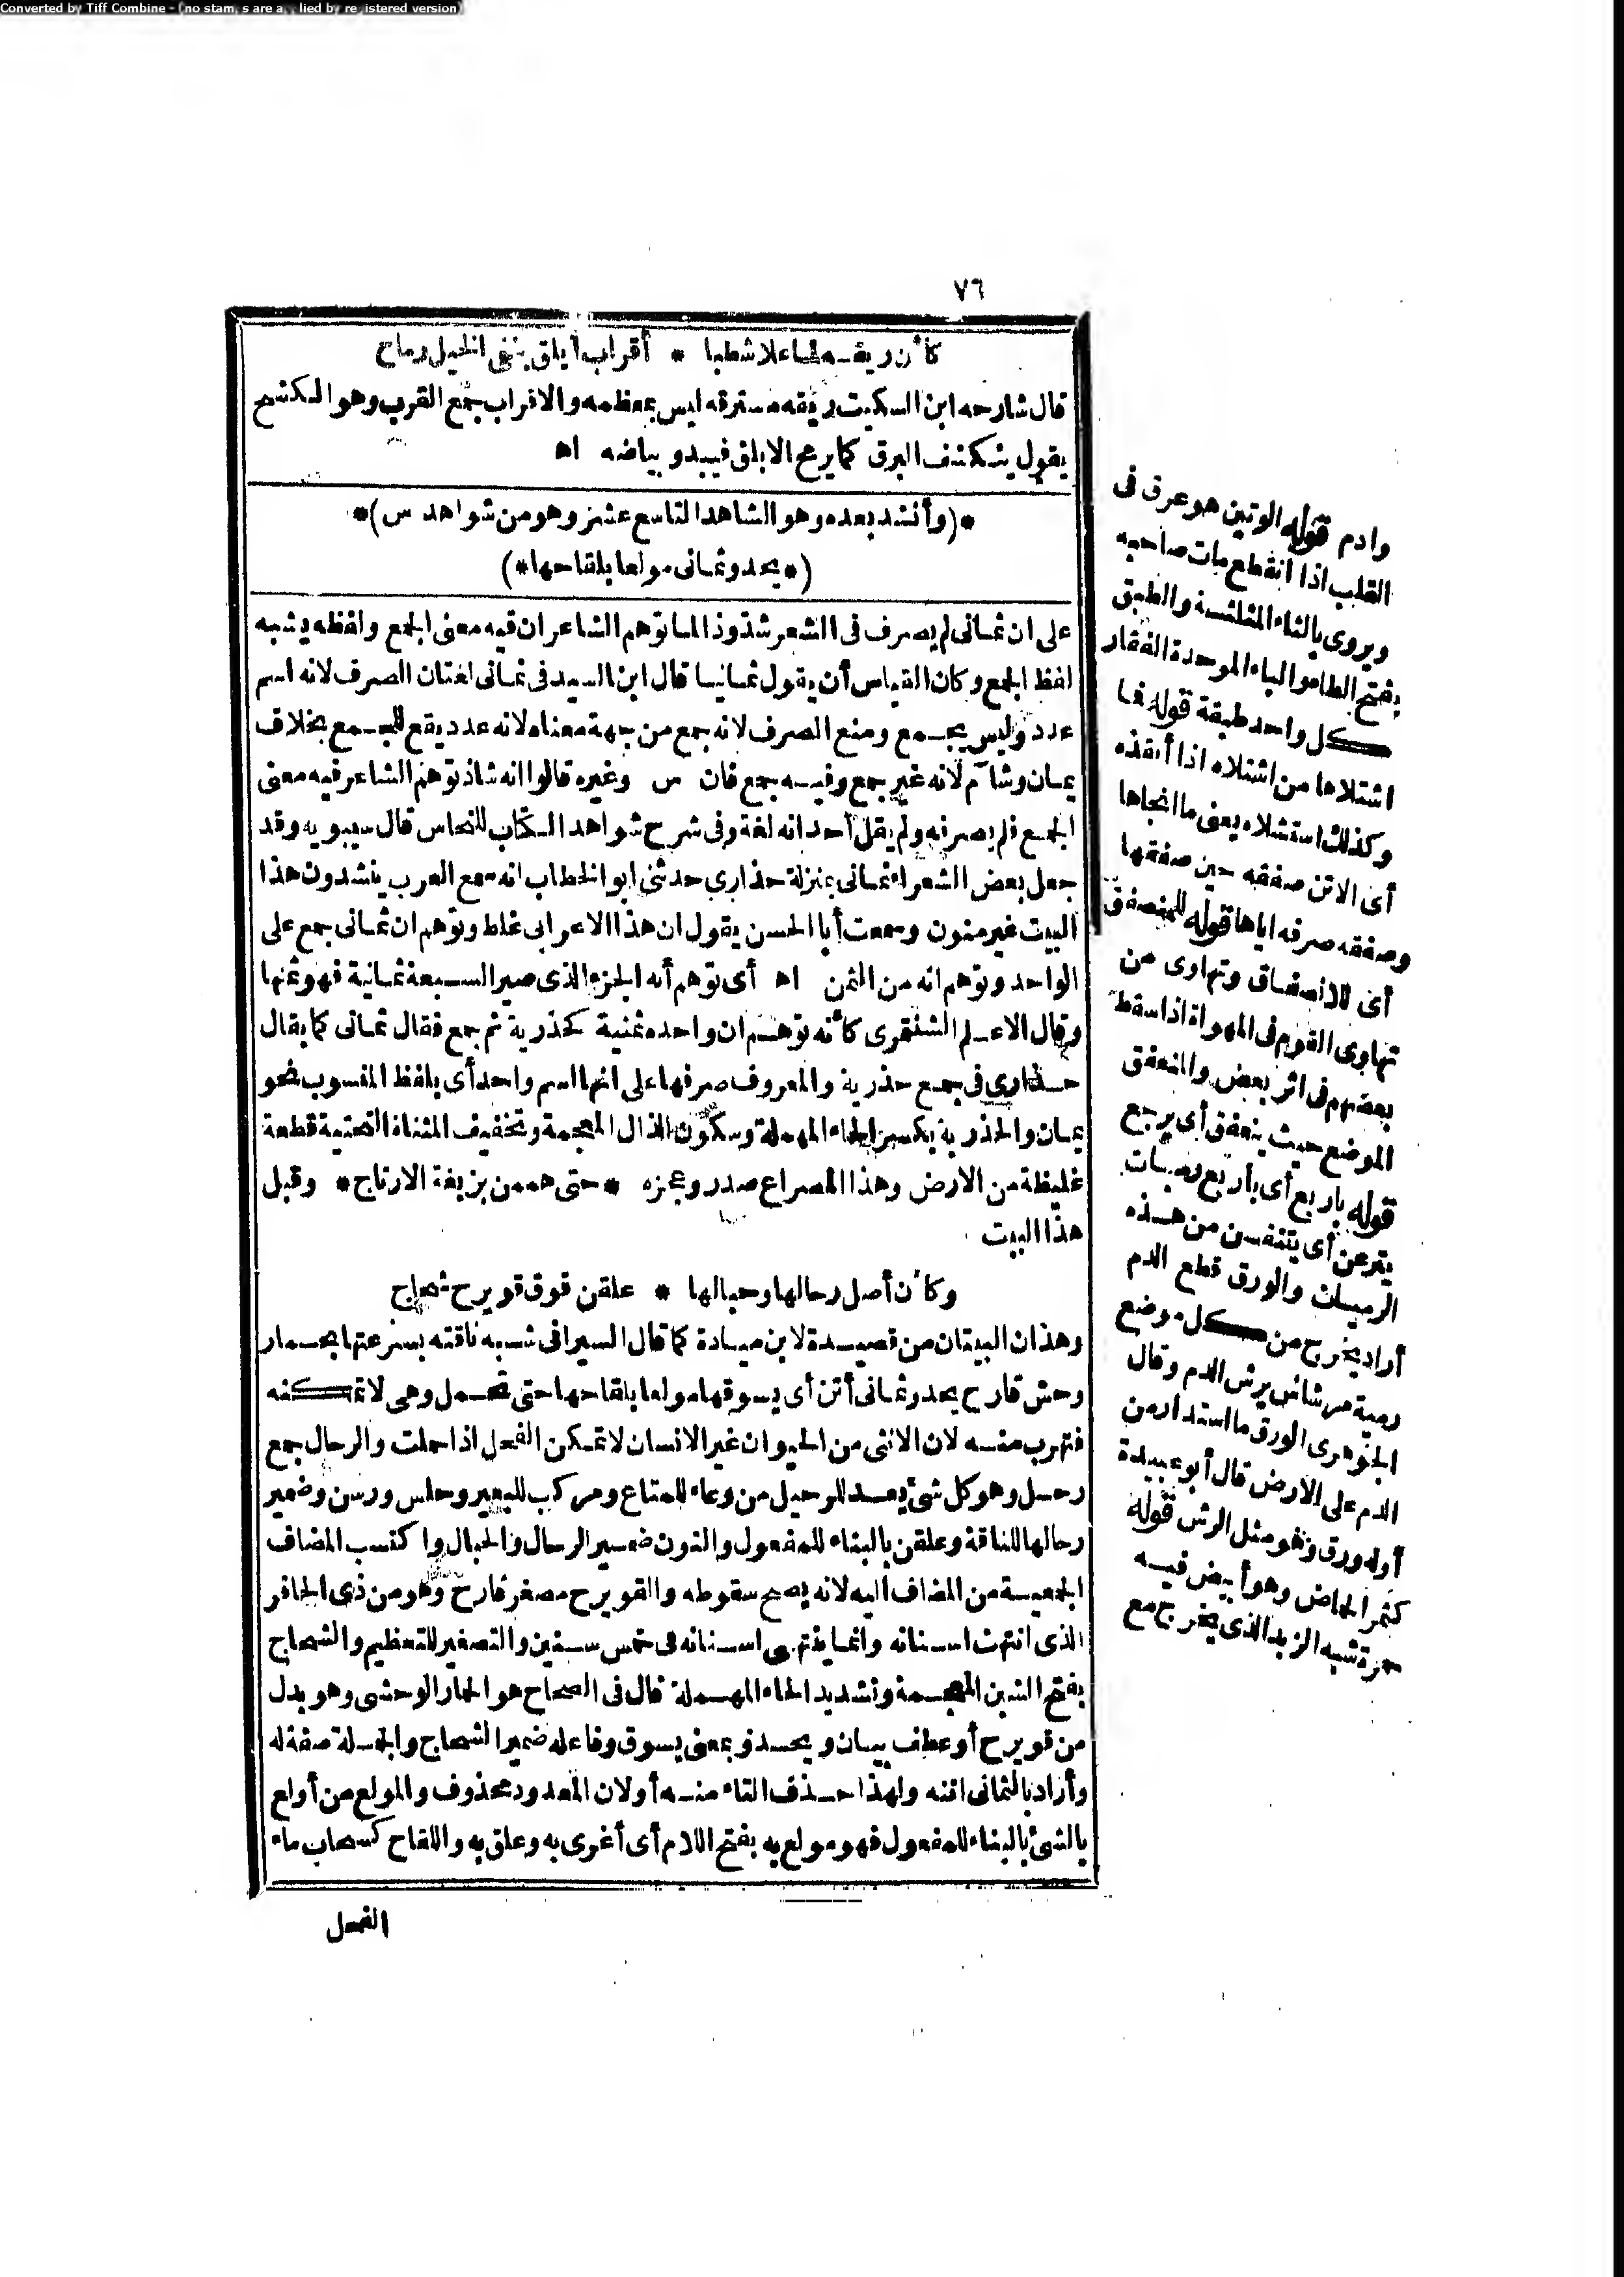 ٧٦
كأن ريقه لما علا شطبا * أقراب أبلق ينفى الخيل رماح
قال شارحه ابن السكيت ريقه مسترقه ليس بمعظمه والاقراب جمع القرب وهو الكشح
يقول يتكشف البرق كما يرمح الابلق فيبدو بياضه اه
*(وأنشد بعده وهو الشاهد التاسع عشر وهو من شواهد س)*
(*يحدو ثمانى مولعا بلقاحها*)
على ان ثمانى لم يصرف فى الشعر شذوذا لما توهم الشاعر ان فيه معنى الجمع ولفظه يشبه
لفظ الجمع وكان القياس أن يقول ثمانيا قال ابن السيد فى ثمانى لغتان الصرف لانه اسم
عدد وليس بجمع ومنع الصرف لانه جمع من جهة معناه لانه عدد يقع للجمع بخلاف
يمان وشآم لانه غير جمع وفيه جمع فان س وغيره قالوا انه شاذ توهم الشاعر فيه معنى
الجمع فلم يصرفه ولم يقل أحد انه لغة وفى شرح شواهد الكتاب للنحاس قال سيبويه وقد
جعل بعض الشعراء ثمانى بمنزلة حذارى حدثنى ابو الخطاب انه سمع العرب ينشدون هذا
البيت غير منون وسمعت أبا الحسن يقول ان هذا الاعرابى غلط وتوهم ان ثمانى جمع على
الواحد وتوهم انه من الثمن اه أى توهم أنه الجزء الذى صير السبعة ثمانية فهو ثمنها
وقال الاعلم الشنتمرى كأنه توهم ان واحده ثمنية كحذرية ثم جمع فقال ثمانى كما يقال
حذارى فى جمع حذرية والمعروف صرفها على انها اسم واحد أى بلفظ المنسوب نحو
يمان والحذرية بكسر الحاء المهملة وسكون الذال المعجمة وتخفيف المثناة التحتية قطعة
غليظة من الارض وهذا المصراع صدر وعجزه *حتى هممن بزيغة الارتاج* وقبل
هذا البيت
وكأن أصل رحالها وحبالها * علقن فوق قويرح شحاج
وهذان البيتان من قصيدة لابن ميادة كما قال السيرافى شبه ناقته بسرعتها بحمار
وحش قارح يحدو ثمانى أتن أى يسوقها مولعا بلقاحها حتى تحمل وهى لا تمكنه
فتهرب منه لان الانثى من الحيوان غير الانسان لا تمكن الفحل اذا حملت والرحال جمع
رحل وهو كل شئ يعد للرحيل من وعاء للمتاع ومركب للبعير وحلس ورسن وضمير
رحالها للناقة وعلقن بالبناء للمفعول والنون ضمير الرحال والحبال واكتسب المضاف
الجمعية من المضاف اليه لانه يصح سقوطه والقويرح مصغر قارح وهو من ذى الحافر
الذى انتهت اسنانه وانما ينتهى اسنانه فى خمس سنين والتصغير للتعظيم والشحاج
بفتح الشين المعجمة وتشديد الحاء المهملة قال فى الصحاح هو الحمار الوحشى وهو بدل
من قويرح أو عطف بيان ويحدو بمعنى يسوق وفاعله ضمير الشحاج والجملة صفة له
وأراد بالثمانى اتنه ولهذا حذف التاء منه أو لان المعدود محذوف والمولع من أولع
بالشئ بالبناء للمفعول فهو مولع به بفتح اللام أى أغرى به وعلق به واللقاح كسحاب ماء
الفحل
وادم قوله الوتين هو عرق فى
القلب اذا انقطع مات صاحبه
ويروى بالثاء المثلثة والطبق
بفتح الطاء والباء الموحدة الفقار
كل واحد طبقة قوله فما
اشتلاها من اشتلاه اذا أنقذه
وكذلك استشلاه يعنى ما انجاها
أى الاتن صفقه حين صفقها
وصفقه صرفه اياها قوله للمنصفق
أى للانصفاق وتهاوى من
تهاوى القوم فى المهواة اذا سقط
بعضهم فى اثر بعض والمنعفق
الموضع حيث ينعفق أى يرجع
قوله باربع أى باربع رميات
ينزعن أى يتنفسن من هذه
الرميات والورق قطع الدم
أراد يخرج من كل موضع
رمية مرشاش يرش الدم وقال
الجوهرى الورق ما استدار من
الدم على الارض قال أبو عبيدة
أوله ورق وهو مثل الرش قوله
كثمر الحماض وهو أبيض فيه
حمرة شبه الزبد الذى يخرج مع